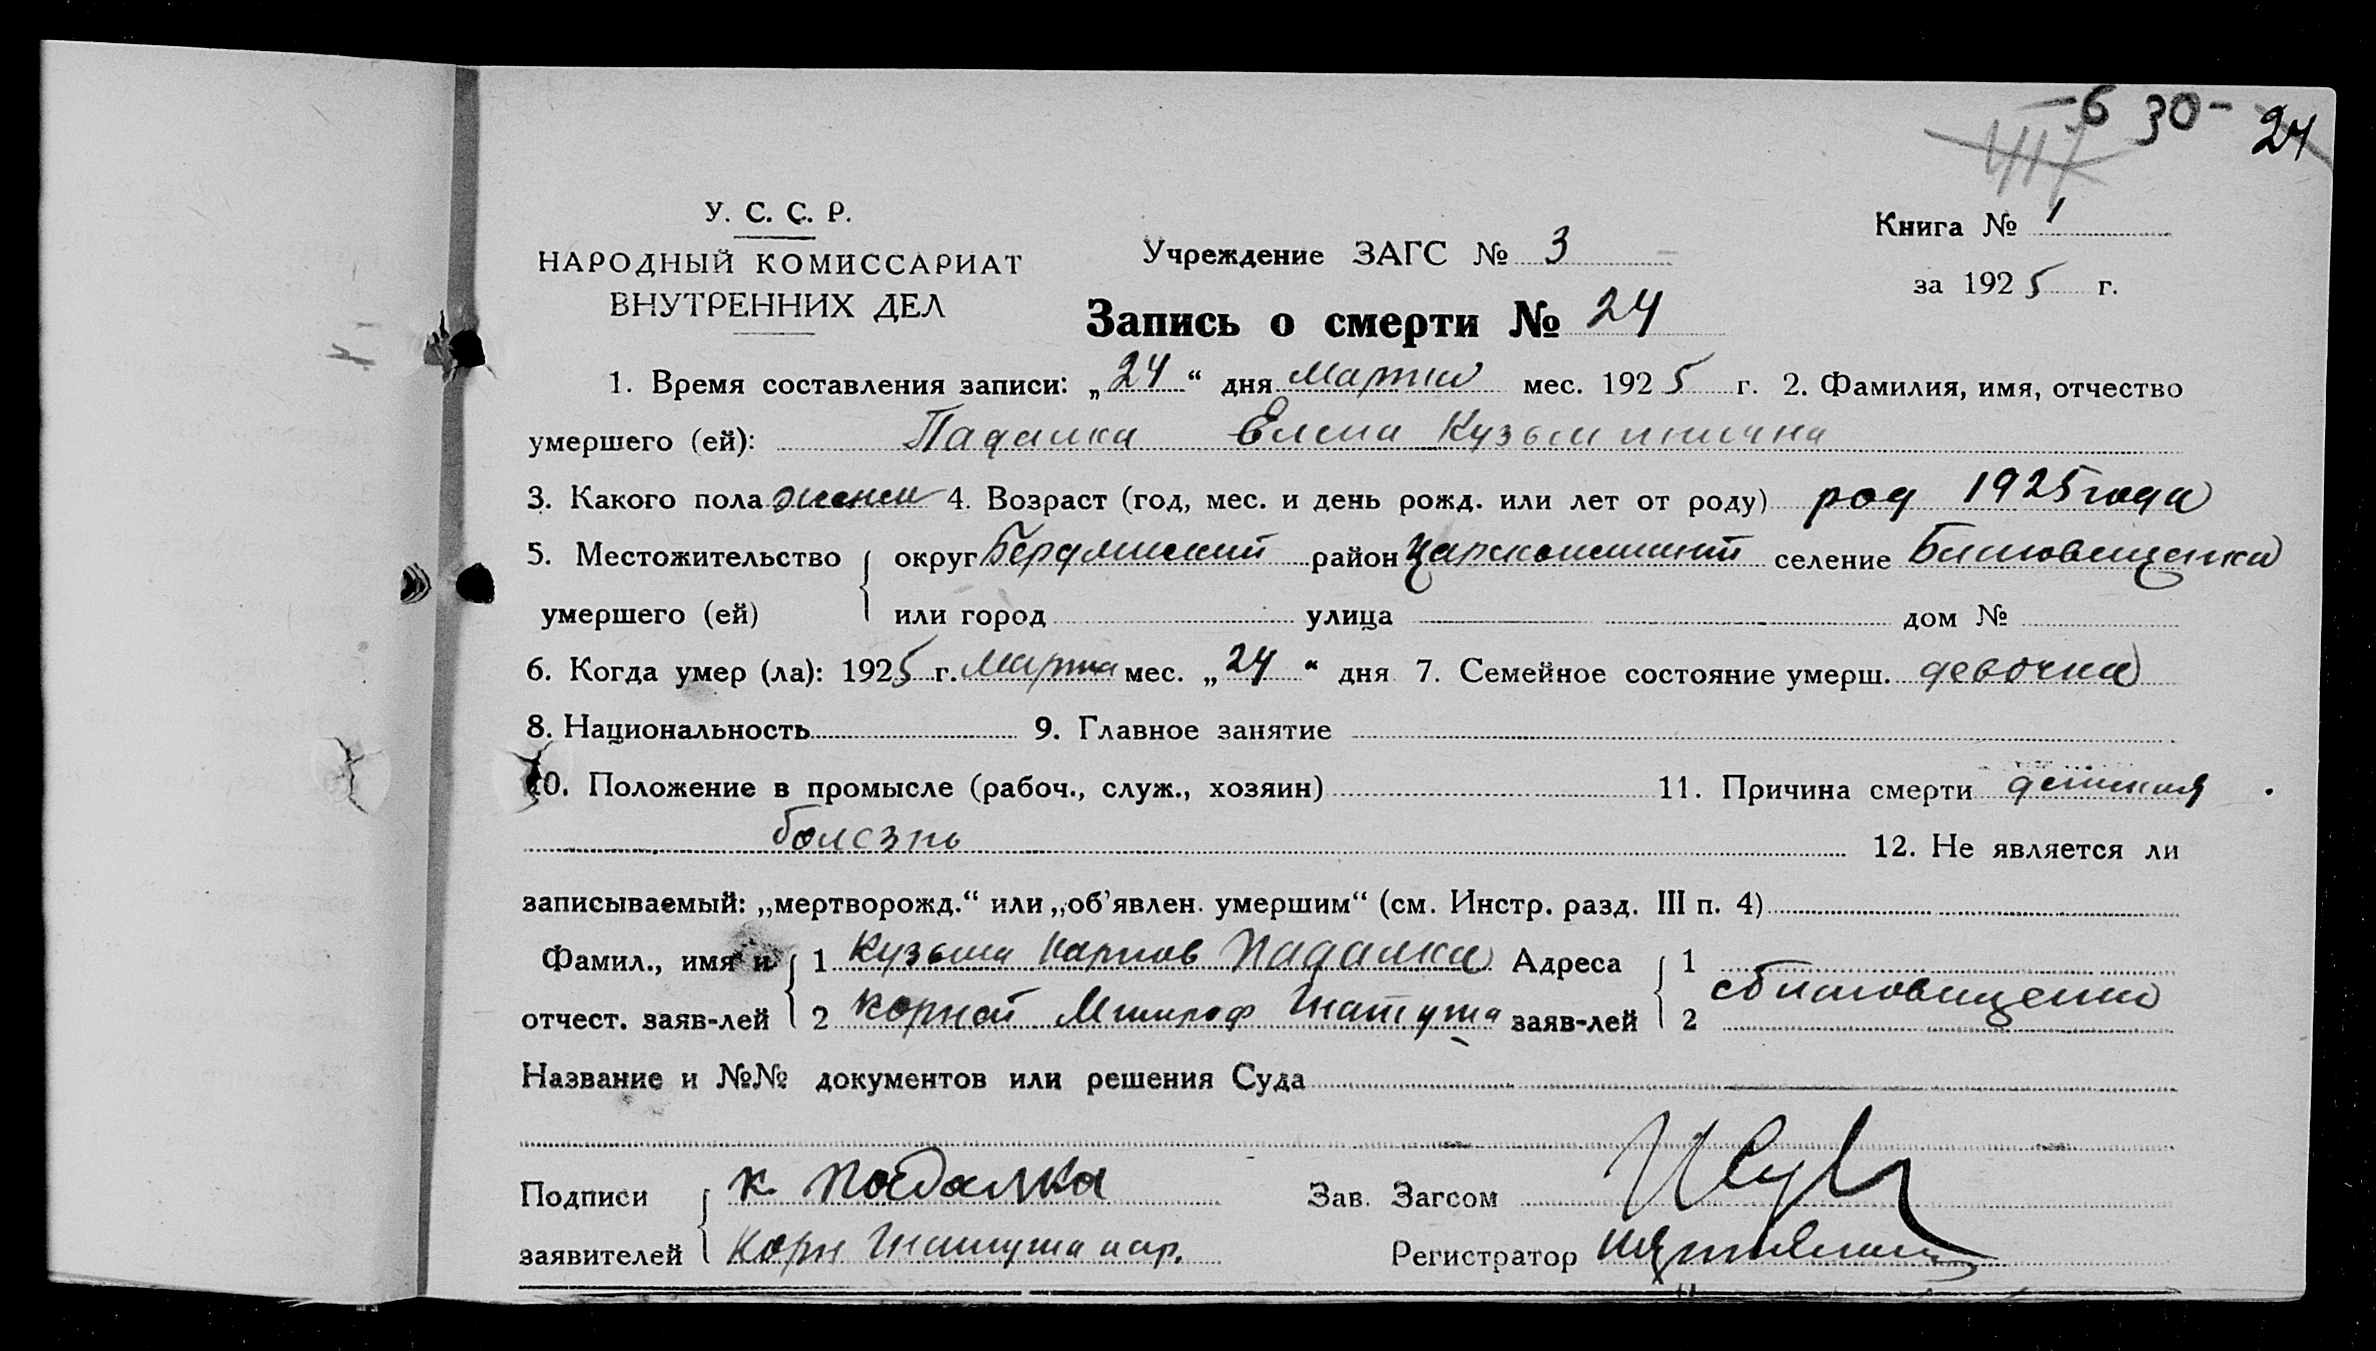 -6 30- 24
У. С. С. Р.
НАРОДНЫЙ КОМИССАРИАТ
ВНУТРЕННИХ ДЕЛ
Учреждение ЗАГС № 3
Книга № 1
за 1925 г.
Запись о смерти № 24
1. Время составления записи: „24“ дня марта мес. 1925 г. 2. Фамилия, имя, отчество
умершего (ей): Падалка Елена Кузьминична
3. Какого пола женск 4. Возраст (год, мес. и день рожд. или лет от роду) род 1925 года
5. Местожительство округ Бердянский район селение
умершего (ей) или город улица дом №
6. Когда умер (ла): 1925 г. Марта мес. „24“ дня 7. Семейное состояние умерш. девочка
8. Национальность 9. Главное занятие
10. Положение в промысле (рабоч., служ., хозяин) 11. Причина смерти детская
болезнь 12. Не является ли
записываемый: „мертворожд.“ или „об'явлен. умершим“ (см. Инстр. разд. III п. 4)
Фамил., имя и 1 Кузьма Карпов Падалка Адреса 1
отчест. заяв-лей 2 Корней заяв-лей 2
Название и №№ документов или решения Суда
Подписи К Падалка Зав. Загсом
заявителей Корн Регистратор